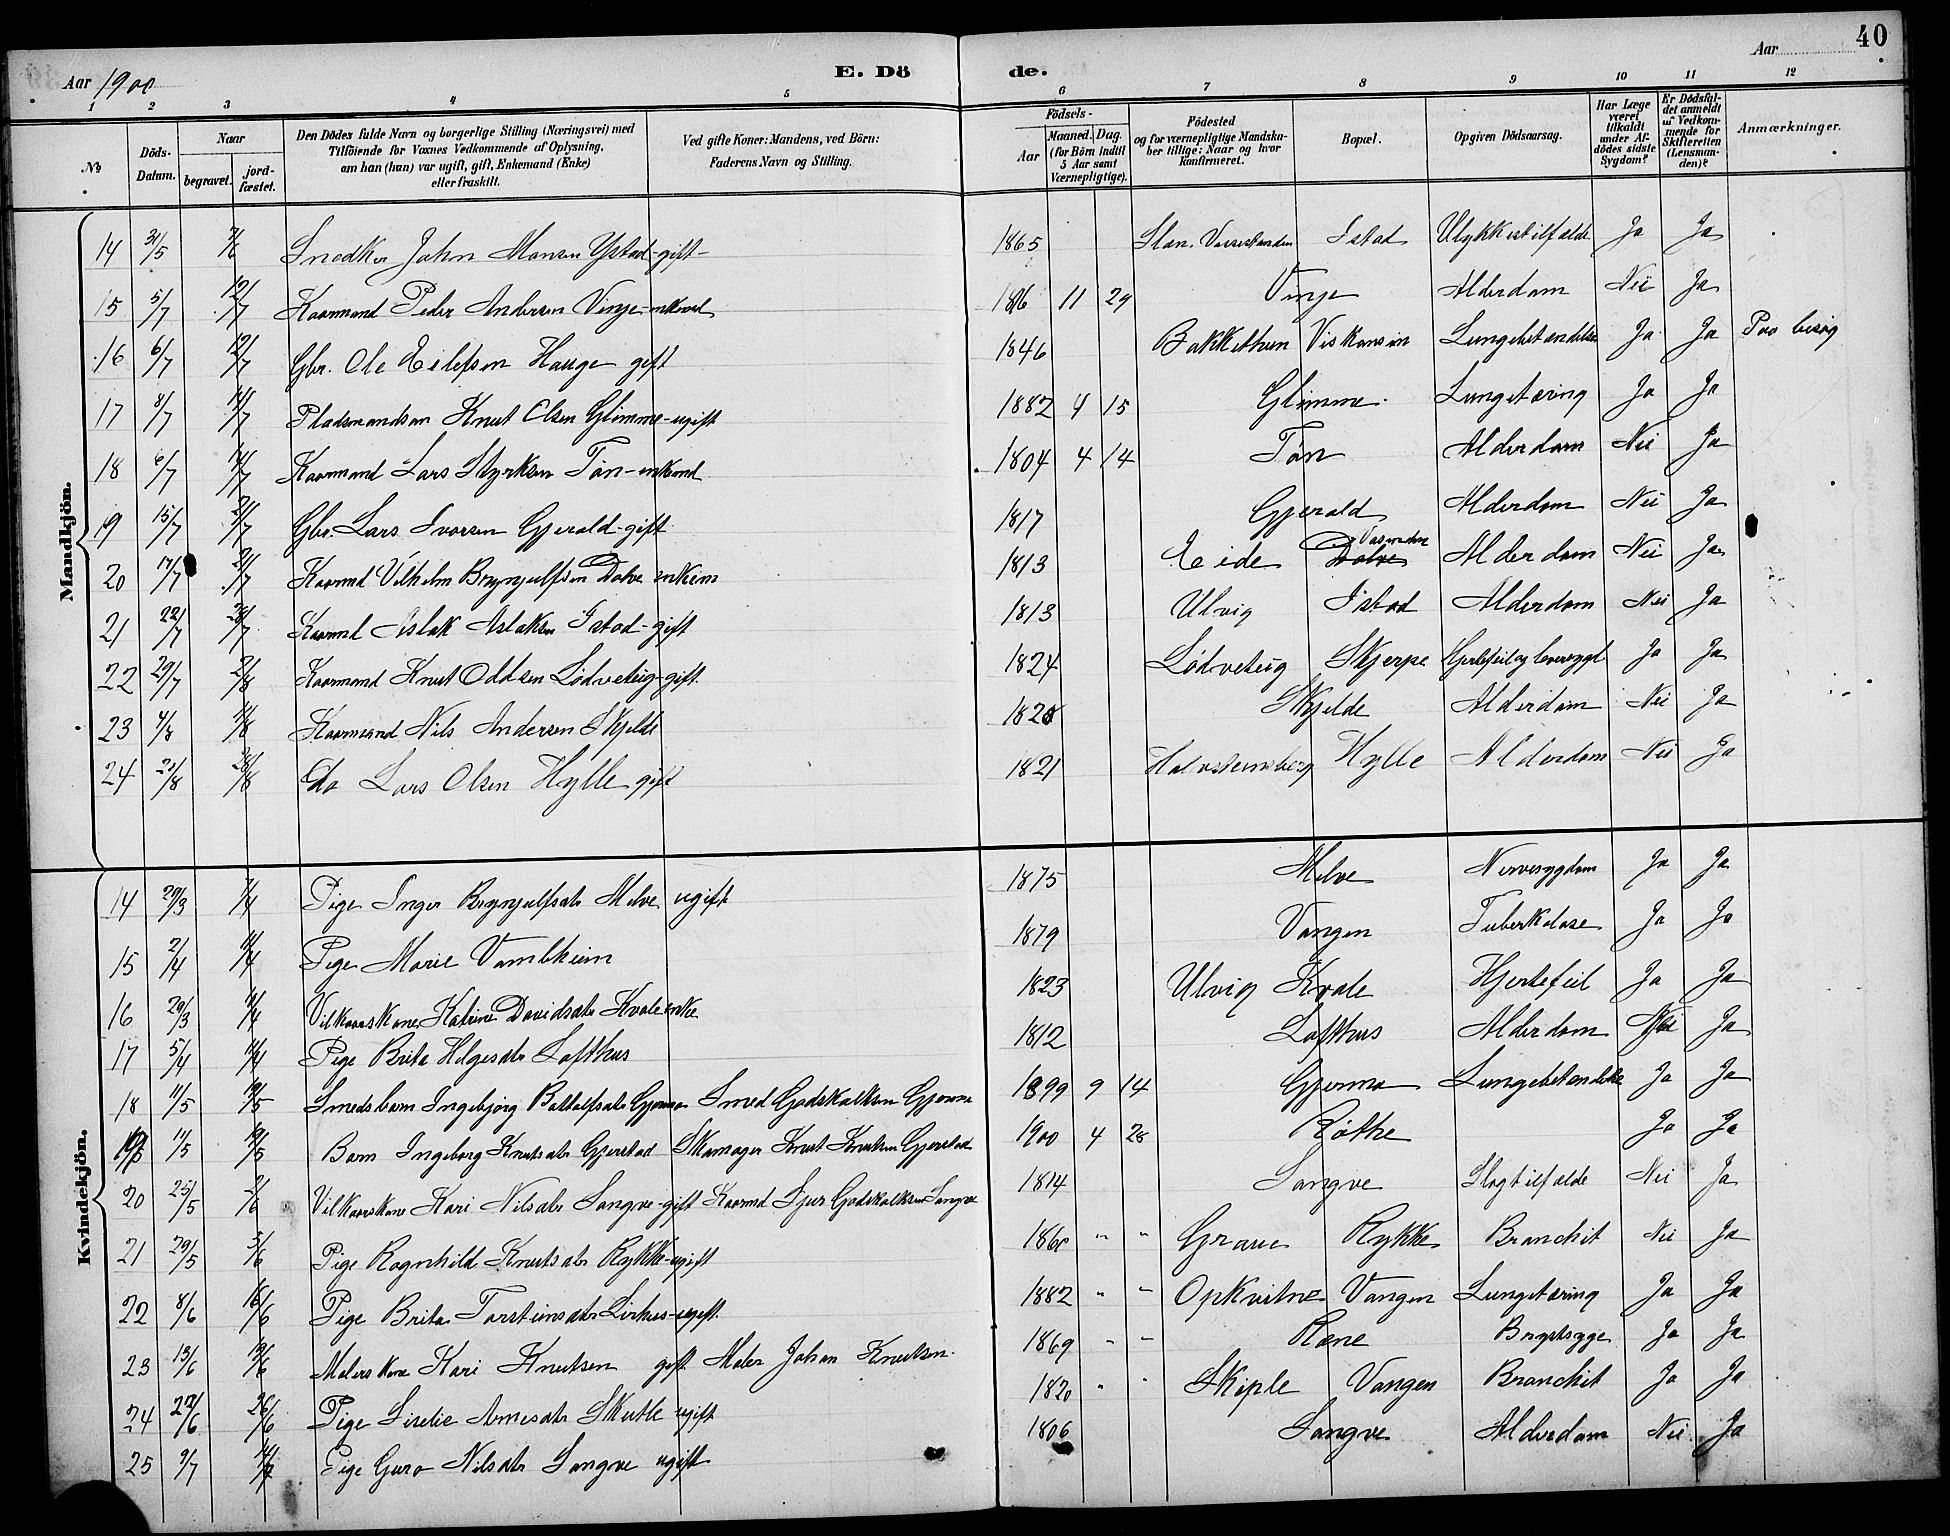 Aar 1900 E. Dö de. Aar 40
1 2 3 4 5 6 7 8 9 10 11 12
№ Döds-Datum. Naar begravet. jord-fæstet. Den Dödes fulde Navn og borgerlige Stilling (Næringsvei) med Tilföiende for Voxnes Vedkommende af Oplysning, om han (hun) var ugift, gift, Enkemand (Enke) eller fraskilt. Ved gifte Koner: Mandens, ved Börn: Faderens Navn og Stilling. Födsels- Aar Maaned. Dag. (for Börn indtil 5 Aar samt Værnepligtige). Födested og for værnepligtige Mandska-ber tillige: Naar og hvor Konfirmeret. Bopæl. Opgiven Dödsaarsag. Har Læge været tilkaldt under Af-dödes sidste Sygdom? Er Dödsfal-det anmeldt af Vedkom-mende for Skifteretten (Lensman-den)? Anmærkninger.
Mandkjön.
14 31/5 7/6 Snedker John Monsen Ystad-gift- 1865 Istad Ulykkestilfælde Ja Ja
15 5/7 12/7 Kaarmand Peder Andersen Vinje-enkemd 11 29 Vinje Alderdom Nei Ja
16 6/7 12/7 Gbr. Ole Eilefsen Hauge gift 1846 Bakkethun Viskonsin Lungebetændelse Ja Ja Paa besøg
17 8/7 14/7 Pladsmandssøn Knut Olsen Glimme-ugift 1882 4 15 Glimme Lungetæring Ja Ja
18 6/7 14/7 Kaarmand Lars Styrksen Tøn-enkemd 1804 4 14 Tøn Alderdom Nei Ja
19 15/7 21/7 Gbr. Lars Ivarsen Gjerald-gift 1817 Gjerald Alderdom Nei Ja
20 17/7 21/7 Kaarmd Vilhelm Brynjulfsen Dolve enkem 1813 Eide Dolve Alderdom Nei Ja
21 22/7 28/7 Kaarmd Aslak Aslaksen Istad-gift 1813 Ulvig Istad Alderdom Nei Ja
22 29/7 2/8 Kaarmand Knut Oddsen Lødveteig-gift. 1824 Lødveteig Skjerpe Hjertefeil og leversygd Ja Ja
23 4/8 11/8 Kaarmand Nils Andersen Skjelde Skjelde Alderdom Nei Ja
24 21/8 28/8 Do Lars Olsen Hylle gift 1821 Hylle Alderdom Nei Ja
Kvindekjön.
14 29/3 7/4 Pige Inger Brynjulfsdtr Melve ugift 1875 Melve Nervesygdom Ja Ja
15 2/4 11/4 Pige Marie Vambheim 1879 Vangen Tuberkulose Ja Ja
16 29/3 9/4 Vilkaarskone Katrine Davidsdtr Kvale enke 1823 Ulvig Kvale Hjertefeil Ja Ja
17 5/4 11/4 Pige Brita Helgesdtr Lofthus 1812 Lofthus Alderdom Nei Ja
18 11/5 19/5 Smedsbarn Ingebjørg Gjerme Smed Godskalksen Gjerme 1899 9 14 Gjerme Lungebetændelse Ja Ja
19 11/5 19/5 Barn Ingeborg Knutsdtr Gjerstad Skomager Knut Knutsen Gjerstad 1900 4 28 Røthe Ja Ja
20 25/5 2/6 Vilkaarskone Kari Nilsdtr Songve-gift Kaarmd Sjur Godskalksen Songve 1814 Songve Slagtilfælde Nei Ja
21 29/5 5/6 Pige Ragnhild Knutsdtr Rykke-ugift " " Graue Rykke Bronchit Nei Ja
22 8/6 16/6 Pige Brita Torsteinsdtr Lirhus-ugift. 1882 " " Opkvitne Vangen Lungetæring Ja Ja
23 13/6 19/6 Malerskone Kari Knutsen gift Maler Johan Knutsen. 1869 " " Rene Brystsyge Ja Ja
24 22/6 26/6 Pige Sirelie Arnesdtr Skutle ugift 1820 " " Skiple Vangen Bronchit Ja Ja
25 9/7 Pige Guro Nilsdtr Songve ugift 1806 Songve Alderdom Nei Ja